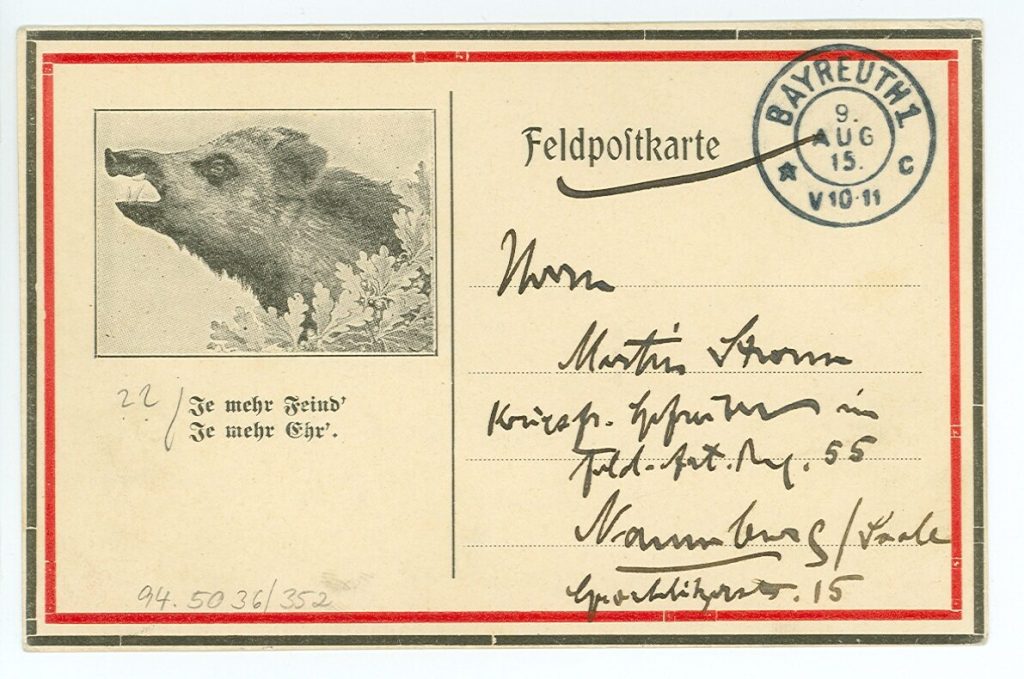 Feldpostkarte
BAYREUTH 1
9.
AUG
15.
V 10-11
C
Herrn
Martin
im
Feld-Art. Reg. 55
Naumburg / Saale
15
22
Je mehr Feind'
Je mehr Ehr'.
94.5036/352